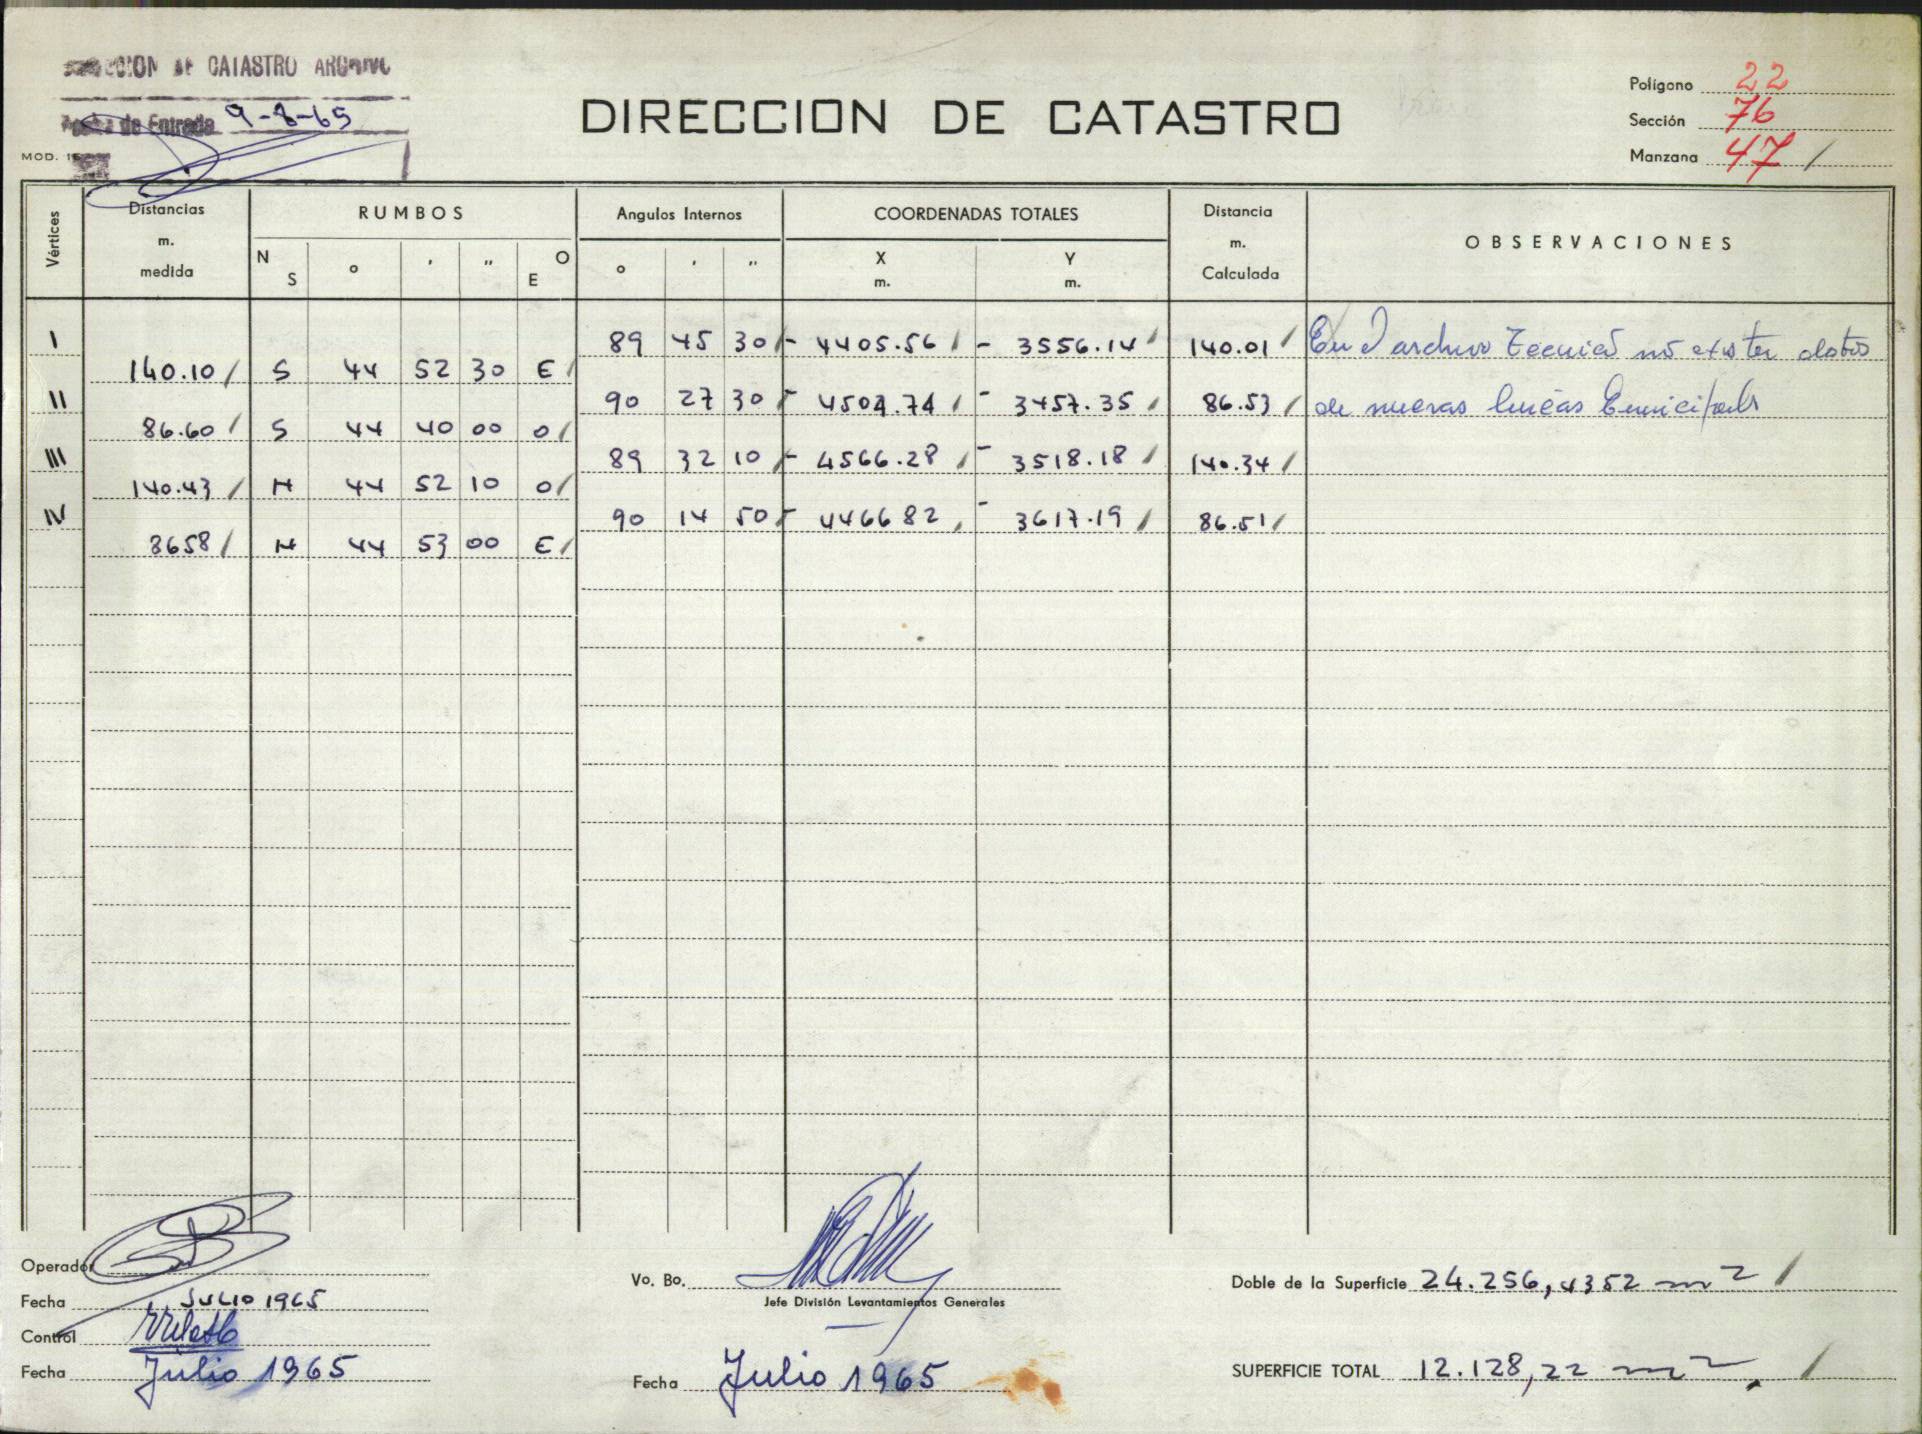 CATASTRO ARCHIVO
de Entrada 9-8-65
MOD.
DIRECCION DE CATASTRO
Polígono 22
Sección 76
Manzana 47 /
Vértices
Distancias m. medida
RUMBOS
N S ° ' " O E
Angulos Internos
° ' "
COORDENADAS TOTALES
X m. Y m.
Distancia m. Calculada
OBSERVACIONES
I 89 45 30 / - 4405.56 / - 3556.14 / 140.01 / archivo no datos
140.10 / S 44 52 30 E /
II 90 27 30 - 4504.74 / - 3457.35 / 86.53 / de nuevas
86.60 / S 44 40 00 O /
III 89 32 10 / - 4566.28 / - 3518.18 / 140.34 /
140.43 / N 44 52 10 O /
IV 90 14 50 - 4466 82 / - 3617.19 / 86.51 /
8658 / N 44 53 00 E /
Operador
Fecha JULIO 1965
Control
Fecha Julio 1965
Vo. Bo.
Jefe División Levantamientos Generales
Fecha Julio 1965
Doble de la Superficie 24.256,4352 m2 /
SUPERFICIE TOTAL 12.128,22 m2. /